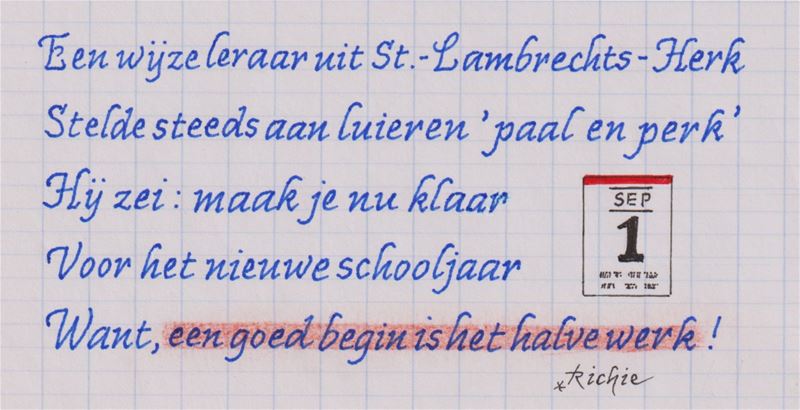 Een wijze leraar uit St.-Lambrechts-Herk
Stelde steeds aan luieren 'paal en perk'
Hij zei: maak je nu klaar
Voor het nieuwe schooljaar
SEP
1
Want, een goed begin is het halve werk!
*Richie